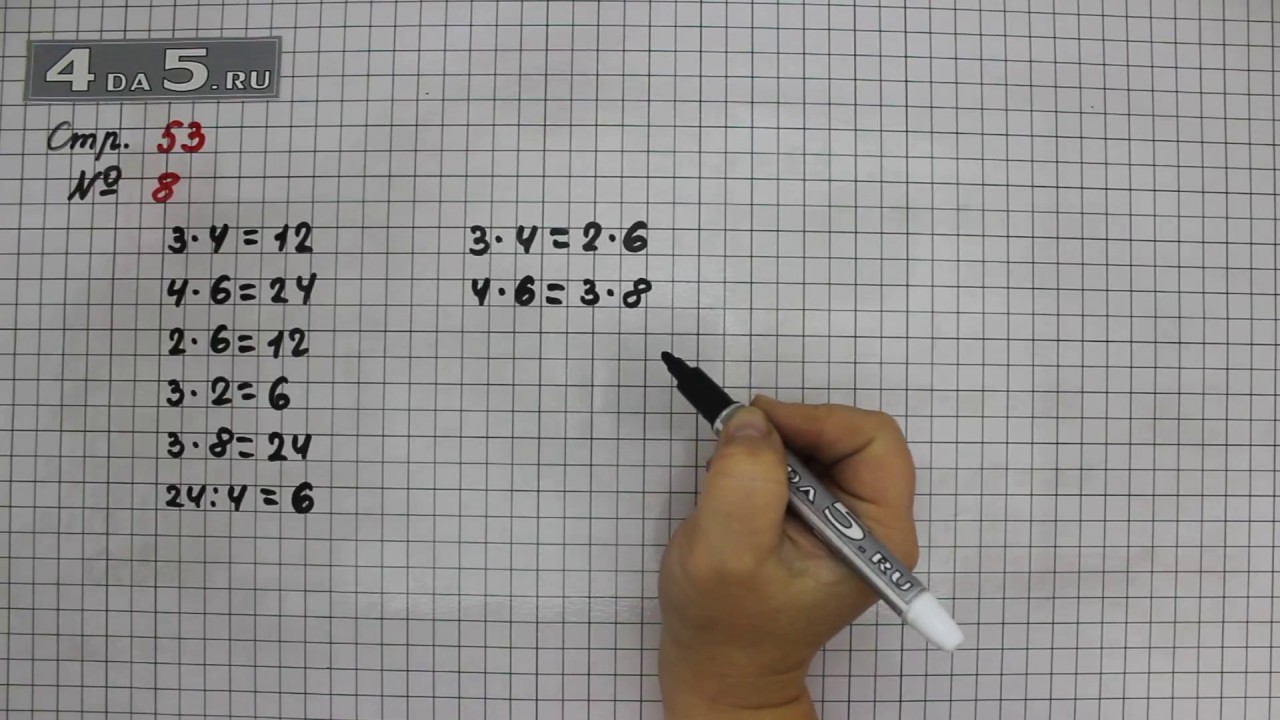 4 DA 5.RU
Стр. 53
№ 8
3·4=12
4·6=24
2·6=12
3·2=6
3·8=24
24:4=6
3·4=2·6
4·6=3·8
DA 5.RU